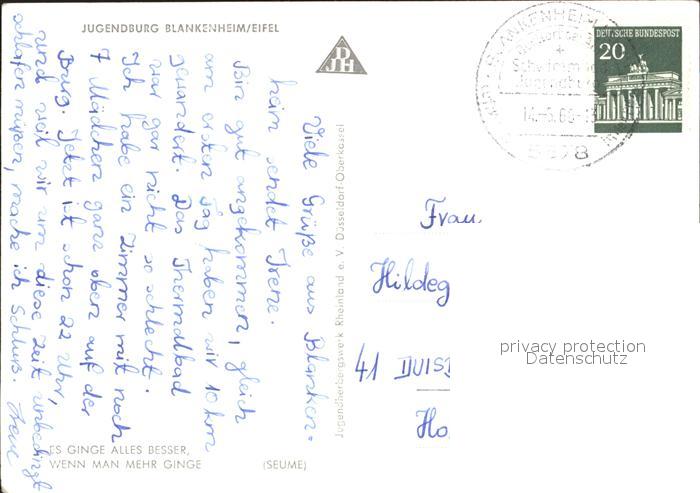 JUGENDBURG BLANKENHEIM/EIFEL
DJH
Viele Grüße aus Blanken-
heim sendet Irene.
Bin gut angekommen, gleich
am ersten Tag haben wir 10 km
gewandert. Das Thermalbad
war gar nicht so schlecht.
Ich habe ein Zimmer mit noch
7 Mädchen ganz oben auf der
Burg. Jetzt ist schon 22 Uhr,
und weil wir um diese Zeit unbedingt
schlafen müssen, mache ich Schluss. Irene
ES GINGE ALLES BESSER,
WENN MAN MEHR GINGE (SEUME)
Jugendherbergswerk Rheinland e. V. Düsseldorf-Oberkassel
BLANKENHEIM
5378
DEUTSCHE BUNDESPOST
20
Frau
Hildeg
41 DUIS
Ho
privacy protection
Datenschutz